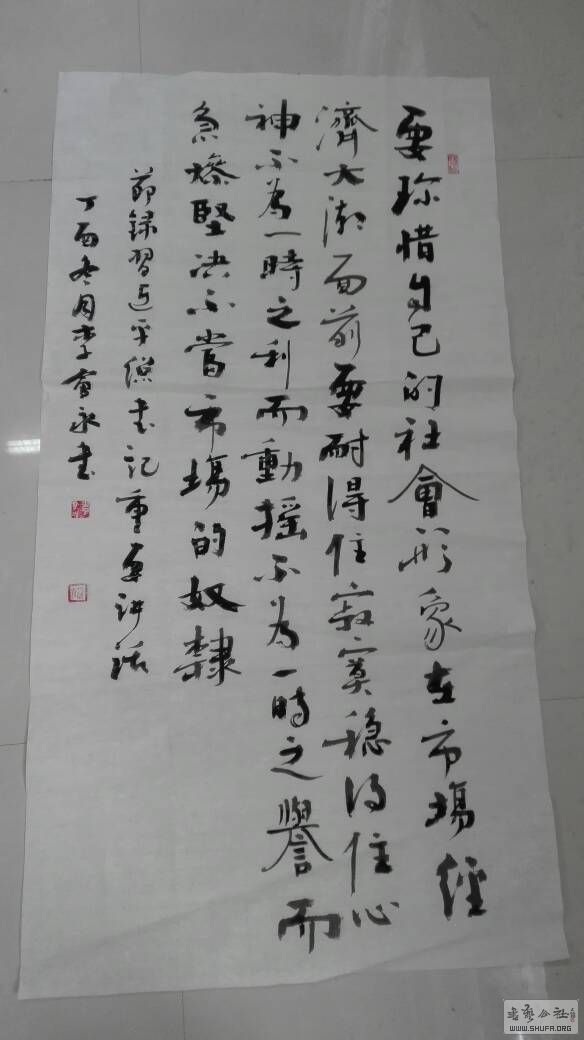 要珍惜自己的社會形象在市場經
濟大潮面前要耐得住寂寞穩得住心
神不為一時之利而動摇不為一時之譽而
急燥堅决不當市場的奴隸
節録習近平總書記重要講話
丁酉冬月李會永書
書藝公社
WWW.SHUFA.ORG